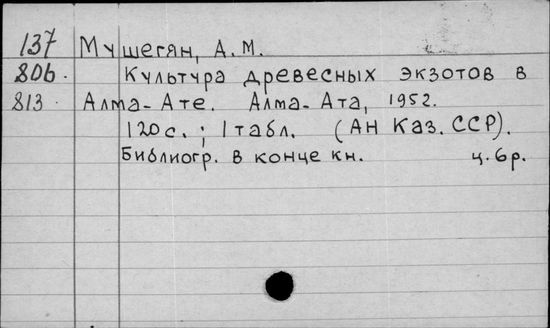 137 Мушегян, А.М.
806. Культура древесных экзотов в
813. Алма-Ате. Алма-Ата, 1952.
120с.; 1табл. (АН Каз. ССР).
Библиогр. в конце кн. ц. 6р.